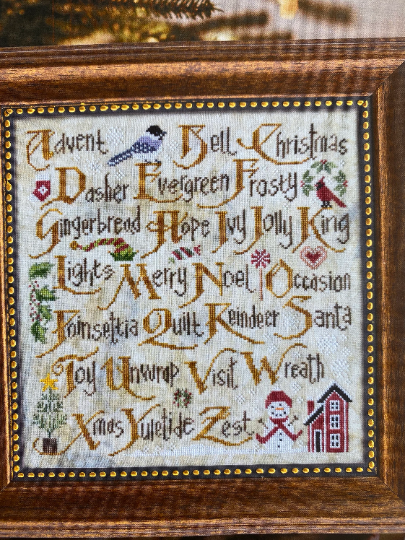 Advent Bell Christmas
Dasher Evergreen Frosty
Gingerbread Hope Ivy Jolly King
Lights Merry Noel Occasion
Poinsettia Quilt Reindeer Santa
Toy Unwrap Visit Wreath
Xmas Yuletide Zest